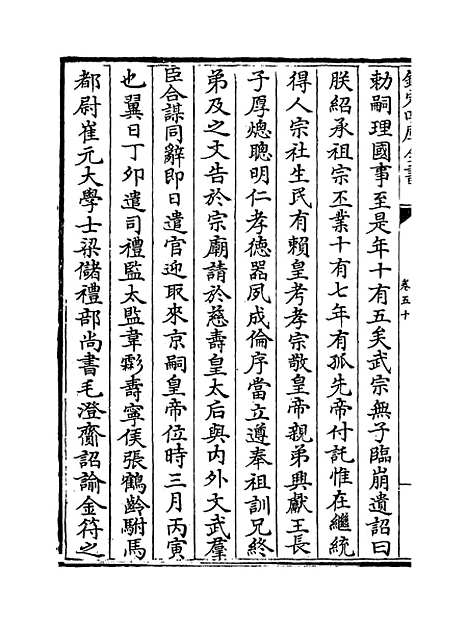 欽定四庫全書
卷五十
勅嗣理國事至是年十有五矣武宗無子臨崩遺詔曰
朕紹承祖宗丕業十有七年有孤先帝付託惟在繼統
得人宗社生民有賴皇考孝宗敬皇帝親弟興獻王長
子厚熜聰明仁孝徳器夙成倫序當立遵奉祖訓兄終
弟及之文告於宗廟請於慈壽皇太后與内外文武羣
臣合謀同辭即日遣官迎取來京嗣皇帝位時三月丙寅
也翼日丁夘遣司禮監太監韋霦壽寧侯張鶴齡駙馬
都尉崔元大學士梁儲禮部尚書毛澄齎詔諭金符之